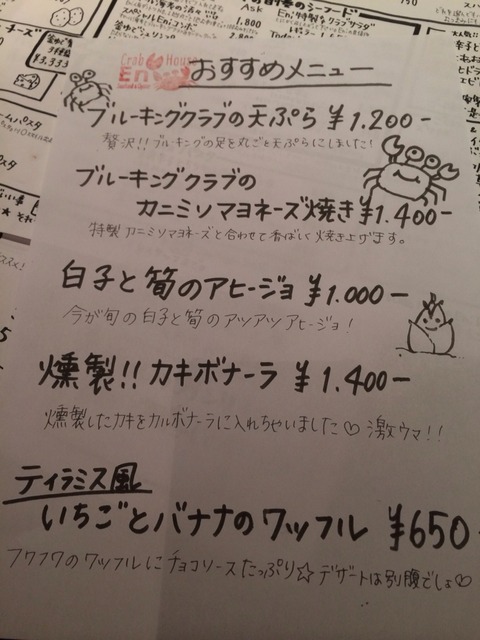 Crab House
En
おすすめメニュー
ブルーキングクラブの天ぷら ¥1.200-
贅沢!! ブルーキングの足を丸ごと天ぷらにしました!
ブルーキングクラブの
カニミソマヨネーズ焼き ¥1.400-
特製カニミソマヨネーズと合わせて香ばしく焼き上げます。
白子と筍のアヒージョ ¥1.000-
今が旬の白子と筍のアツアツアヒージョ!
燻製!! カキボナーラ ¥1.400-
燻製したカキをカルボナーラに入れちゃいました♡ 激ウマ!!
ティラミス風
いちごとバナナのワッフル ¥650-
フワフワのワッフルにチョコソースたっぷり☆ デザートは別腹でしょ♡
¥3,333
1,800
2,800